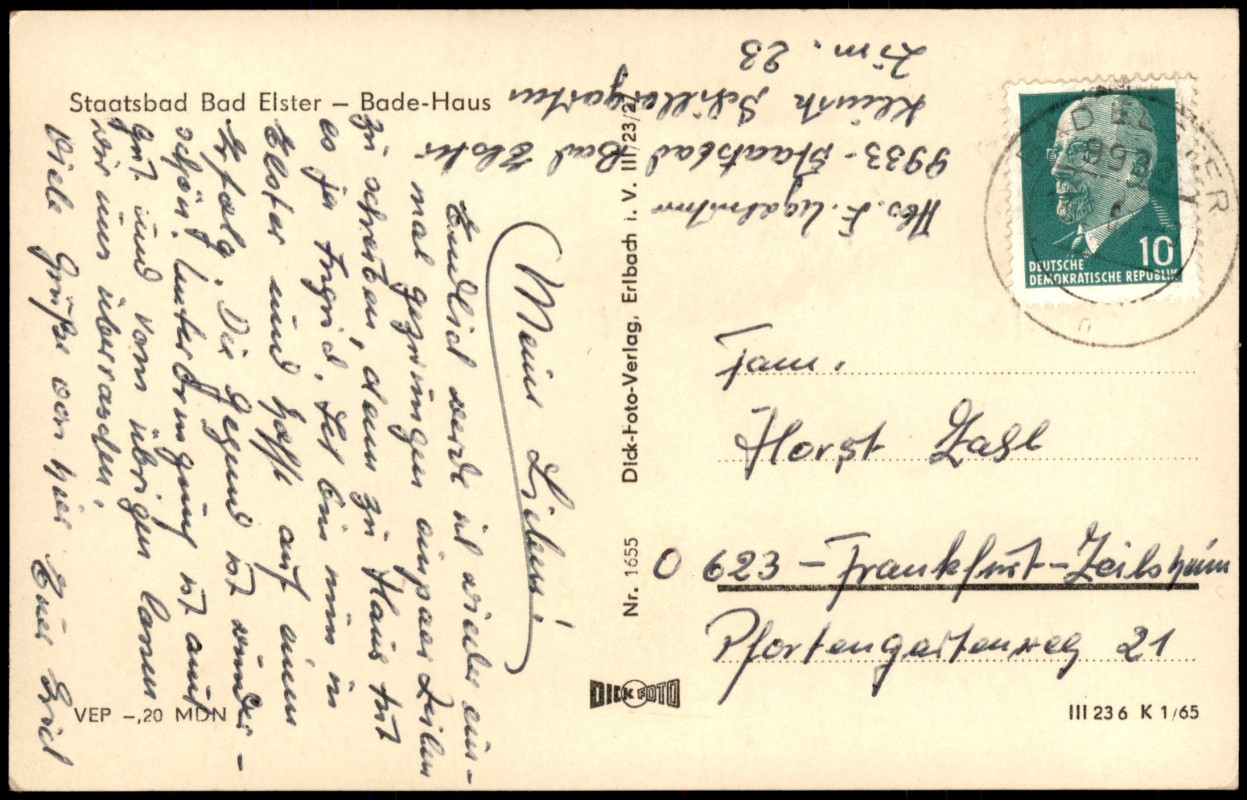 Staatsbad Bad Elster – Bade-Haus
Meine Lieben!
Endlich werde ich wieder ein-
mal gezwungen ein paar Zeilen
zu schreiben, denn zu Haus tut
es ja Ingrid. Ich bin nun in
Elster und hoffe auf einen
Erfolg. Die Gegend ist wunder-
schön, Unterbringung ist auch
gut und vom übrigen lassen
wir uns überraschen.
Viele Grüße von hier Euer Erich
VEP –,20 MDN
Nr. 1655 Dick-Foto-Verlag, Erlbach i. V. III/23/27
DICK FOTO
Abs. E.
9933 - Staatsbad Bad Elster
Klinik Schillergarten
Zim. 23
BAD ELSTER
9933
10
DEUTSCHE
DEMOKRATISCHE REPUBLIK
Fam.
Horst Zahl
623 - Frankfurt-Zeilsheim
Pfortengartenweg 21
III 23 6 K 1/65